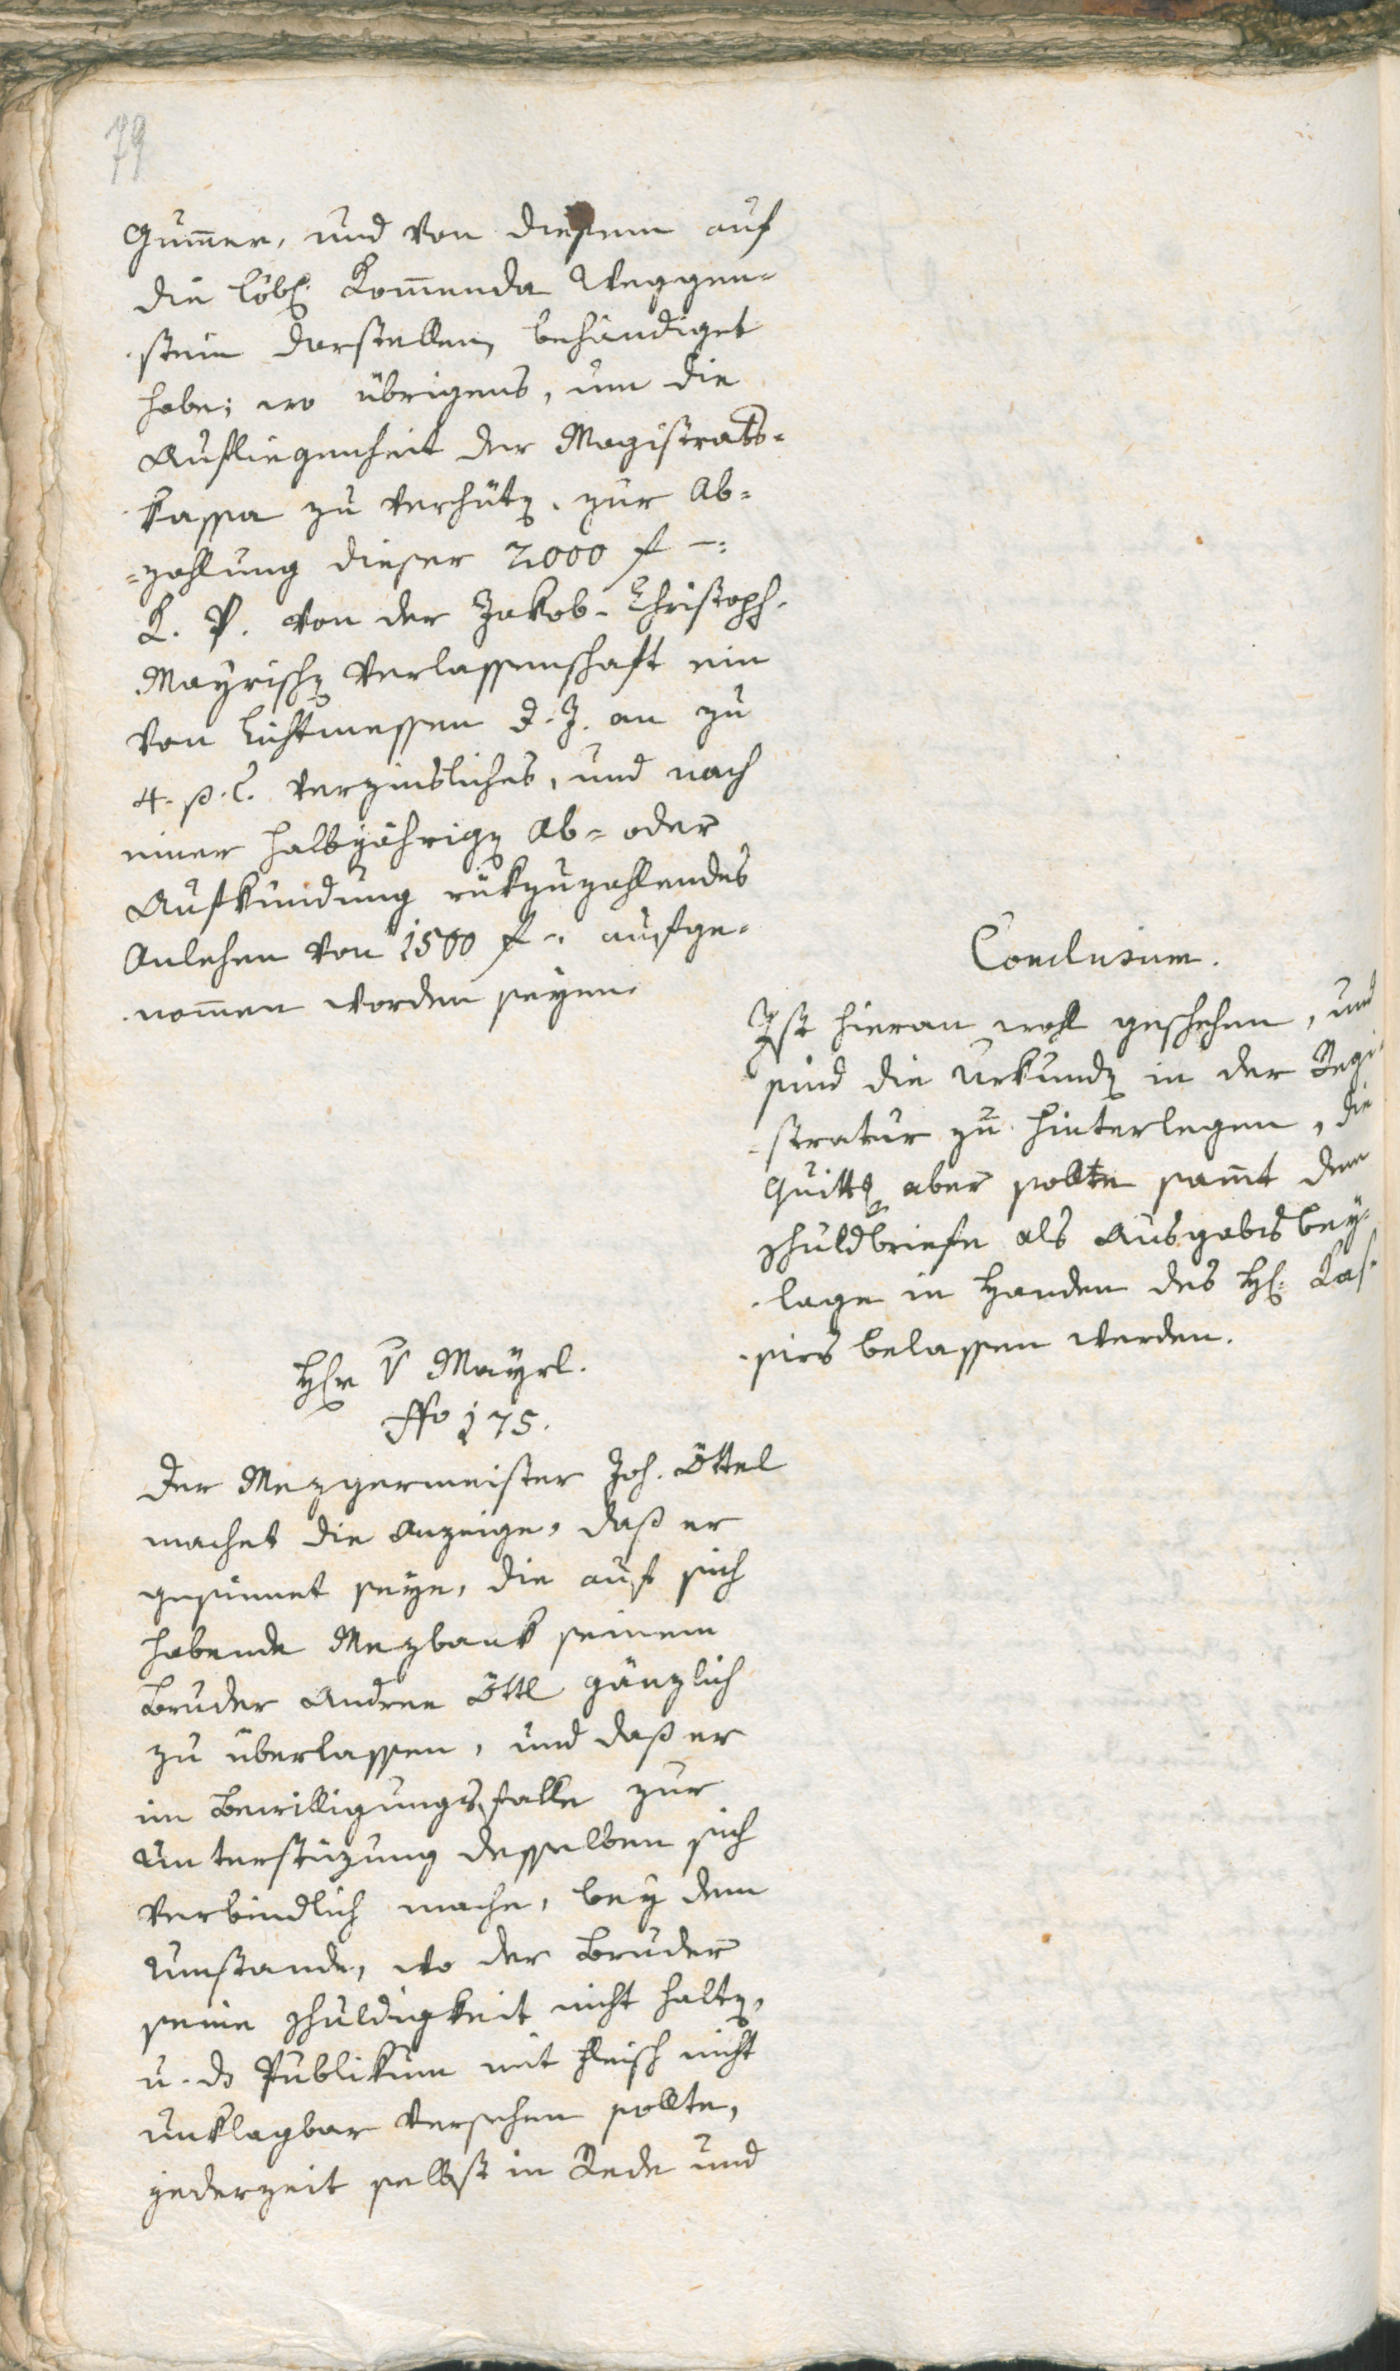 79
Gum̅er, und von diesem auf
die löbl. Kom̅enda Weggen-
stein darstellen, behändiget
habe; wo übrigens, um die
Aufliegenheit der Magistrats-
kassa zu verhüten, zur Ab-
=zahlung dieser 2000 f –:
K. P. von der Jakob-Christoph-
Mayrischen Verlassenschaft ein
von Lichtmessen d. J. an zu
4. p. C. verzinsliches, und nach
einer halbjährigen Ab- oder
Aufkündung rükzuzahlendes
Anlehen von 1500 f –: aufge-
nom̅en worden seyen.
Conclusum.
Ist hieran wohl geschehen, und
sind die Urkunden in der Regi-
stratur zu hinterlegen, die
Quitten aber sollte sam̅t dem
Schuldbriefe als Ausgabsbey-
lage in Handen des H. Kas-
siers belassen werden.
Herr V Mayrl.
No 175.
Der Mezgermeister Joh. Öttel
machet die Anzeige, daß er
gesinnet seye, die auf sich
habende Mezbank seinem
Bruder Andree Öttl gänzlich
zu überlassen, und daß er
im Bewilligungsfalle zur
Unterstüzung desselben sich
verbindlich mache, bey dem
Umstande, wo der Bruder
seine Schuldigkeit nicht halten,
u. ds Publikum mit Fleisch nicht
unklagbar versehen sollte,
jederzeit selbst in Rede und